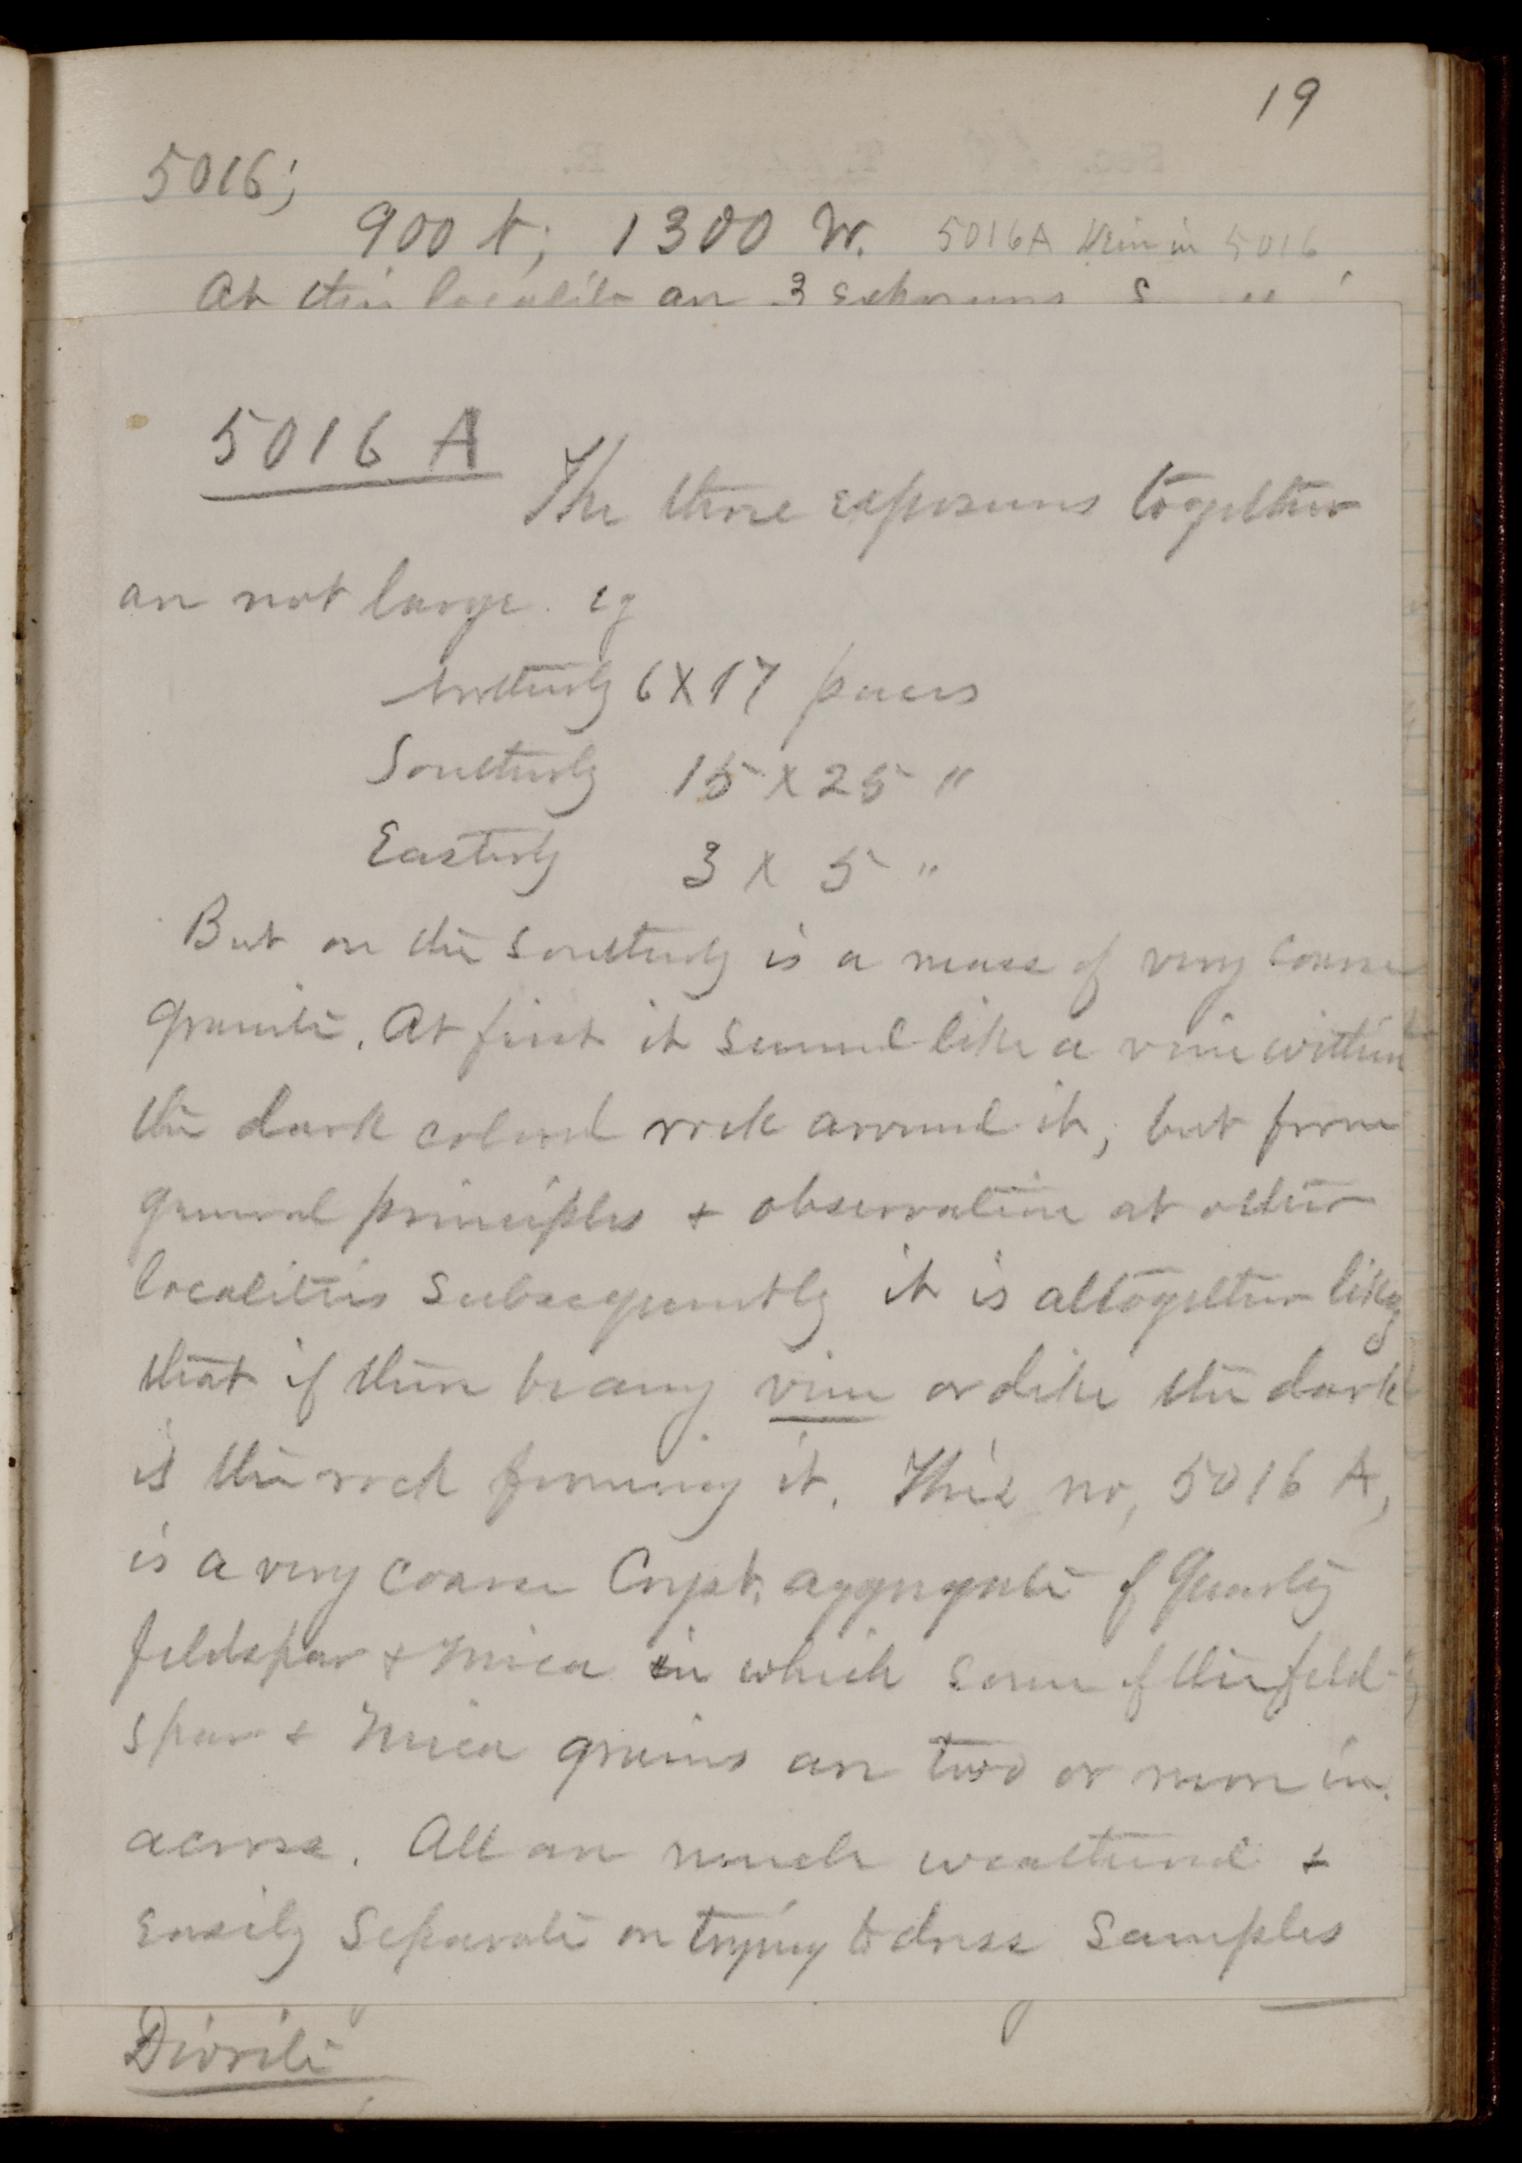 19
5016;
900 N; 1300 W. 5016A Vein in 5016
At this locality are 3 exposures
5016 A
The three exposures together
are not large. eg
Northerly 6 X 17 paces
Southerly 15 X 25 "
Easterly 3 X 5 "
But on the southerly is a mass of very coarse
granite. At first it seemed like a vein within
the dark colored rock around it, but from
general principles + observation at other
localities subsequently it is altogether likely
that if there be any vein or dike the dark
is the rock forming it. This no, 5016 A,
is a very coarse Cryst. aggregate of Quartz
feldspar + mica in which some of the feld-
spar + mica grains are two or more in.
across. All are much weathered +
easily separate on trying to dress samples
Diorite